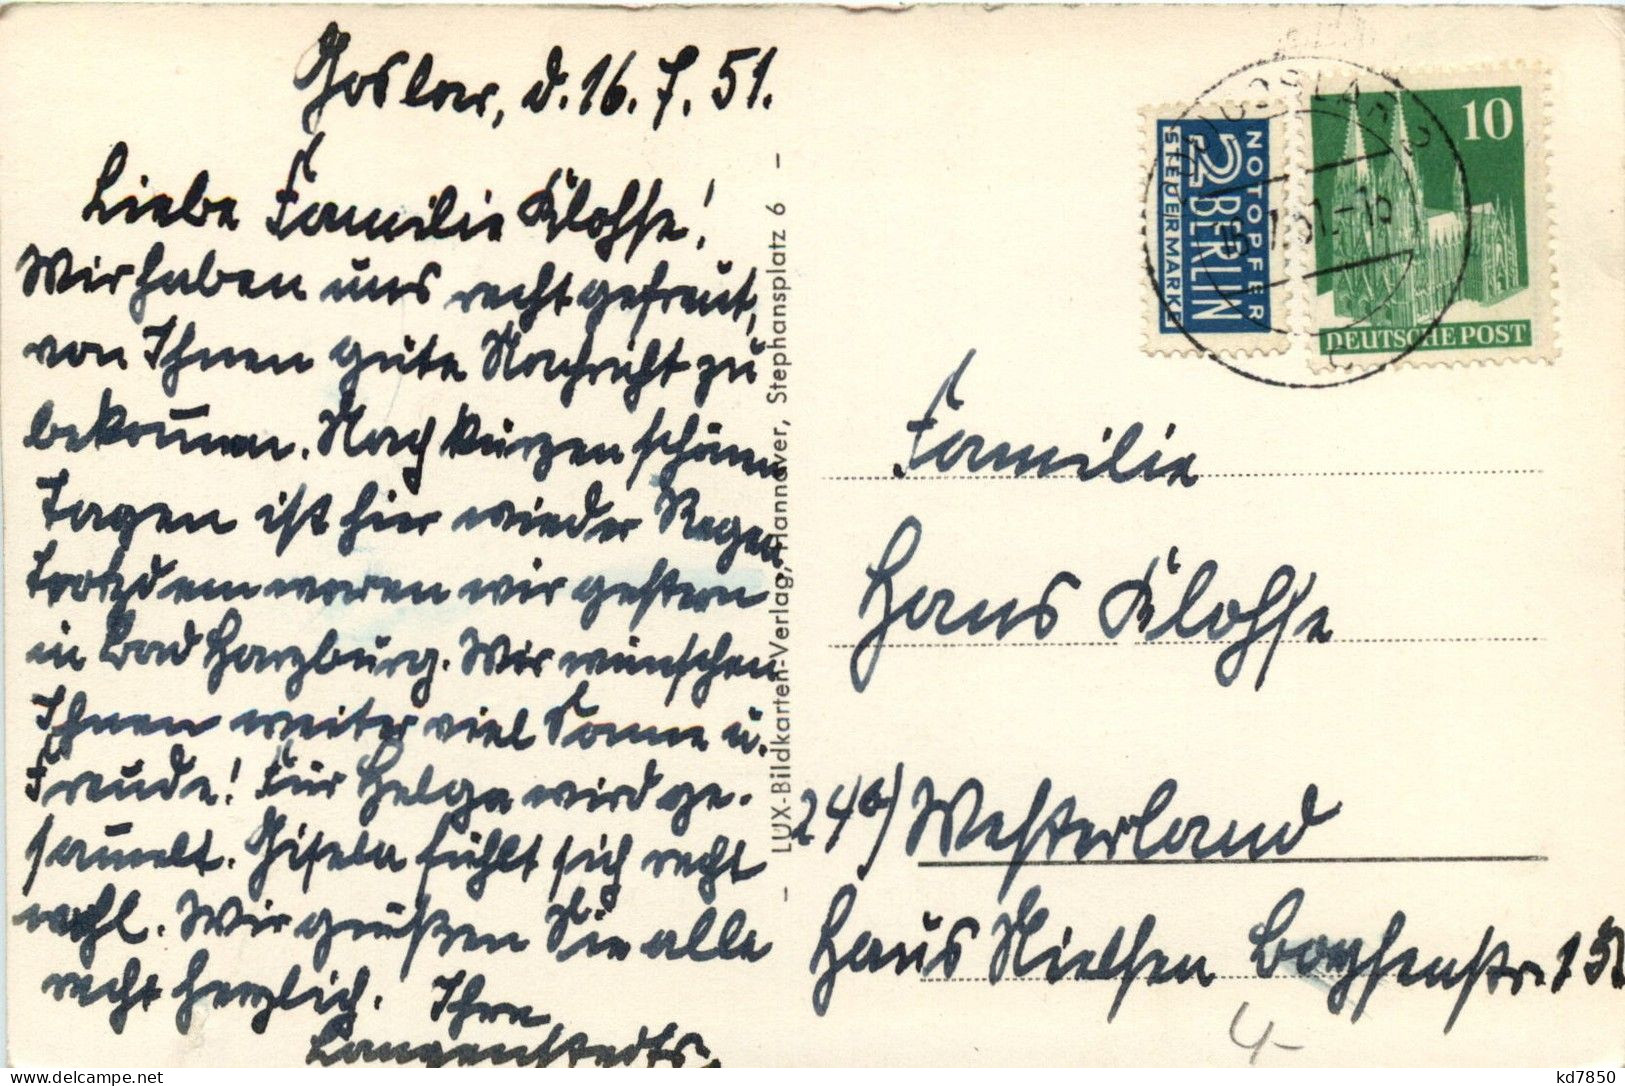 Goslar, d. 16. 7. 51.
Liebe Familie Klohse!
Wir haben uns recht gefreut,
von Ihnen gute Nachricht zu
bekom̅en. Nach kurzen schönen
Tagen ist hier wieder Regen.
Trotzdem waren wir gestern
in Bad Harzburg. Wir wünschen
Ihnen weiter viel Sonne u.
Freude! Für Helga wird ge-
sam̅elt. Gisela fühlt sich recht
wohl. Wir grüßen Sie alle
recht herzlich. Ihre
Langenstedts.
- LUX-Bildkarten-Verlag, Hannover, Stephansplatz 6 -
NOTOPFER
2 BERLIN
STEUERMARKE
10
DEUTSCHE POST
GOSLAR 2
Familie
Hans Klohse
24b) Westerland
Haus Nielsen Boysenstr. 15
4-
kd7850